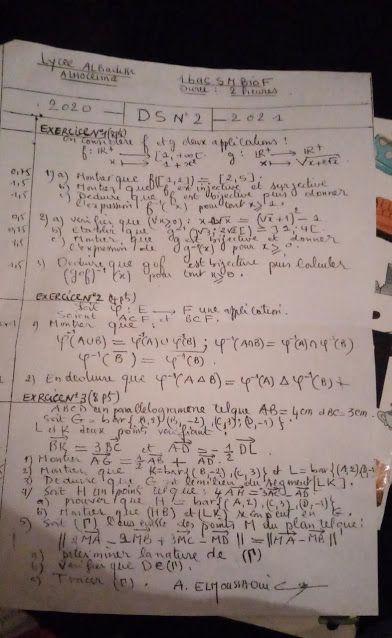 Lycée ALBadissi
ALHOCEIMA
1BAC SM BIOF
Durée : 2 heures
2020 DS N°2 2021
EXERCICE N°1 (8 pts)
On considère f et g deux applications :
f : IR+ → [1, +∞[ g : IR+ → IR+
x → 1 + x² x →
0,75 1) a) Montrer que f([1,2]) = [2,5].
1,5 b) Montrer que f est injective et surjective
1,5 c) Déduire que f est bijective puis donner
l'expression f⁻¹(x) pour tout x ≥ 1.
0,5 2) a) Vérifier que (∀x≥0) ; x + 2√x = (√x + 1)² − 1
b) Etablir que
1,5 c) Montrer que g est injective et donner
l'expression de g⁻¹(x) pour x ≥ 0.
1,5 3) Déduire que gof est bijective puis calculer
(gof)⁻¹(x) pour tout x≥0.
EXERCICE N°2 (4 pts)
Soit φ : E → F une application.
Soient A⊂F et B⊂F.
1) Montrer que
φ⁻¹(A∪B) = φ⁻¹(A)∪φ⁻¹(B) ; φ⁻¹(A∩B) = φ⁻¹(A)∩φ⁻¹(B)
2) En déduire que φ⁻¹(A Δ B) = φ⁻¹(A) Δ φ⁻¹(B)
EXERCICE N°3 (8 pts)
ABCD un parallélogramme telque AB = 4cm et BC = 3cm
Soit G = bar{(A,2);(B,-2),(C,3);(D,-1)}.
L et K deux points vérifiant
BK = 3BC et AD = -1/2 DL
1) Montrer AG = AB + AD.
2) Montrer que K = bar{(B,-2),(C,3)} et L = bar{(A,2)(D,-1)
3) Déduire que G est le milieu du segment [LK].
4) Soit H un point telque : 4AH = 3AC - AD
a) prouver que H = bar{(A,2),(C,3),(D,-1)}
b) Montrer que (HB) et (LK) se coupent en G.
5) Soit (Γ) l'ensemble des points M du plan telque :
‖2MA - 2MB + 3MC - MD‖ = ‖MA - MB‖
a) Déterminer la nature de (Γ)
b) Vérifier que D∈(Γ).
c) Tracer (Γ).
A. ELMOUSSAOUI